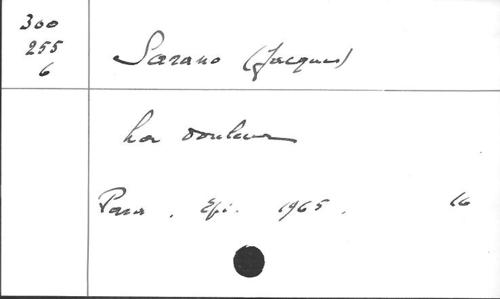 300
255
6
Sarano (Jacques)
La douleur
Paris. Epi. 1965. 16